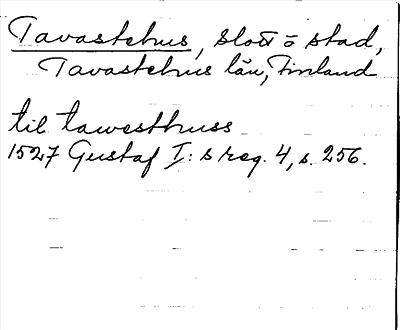 Tavastehus, slott o stad,
Tavastehus län, Finland
til tawesthuss
1527 Gustaf I: s reg. 4, s. 256.